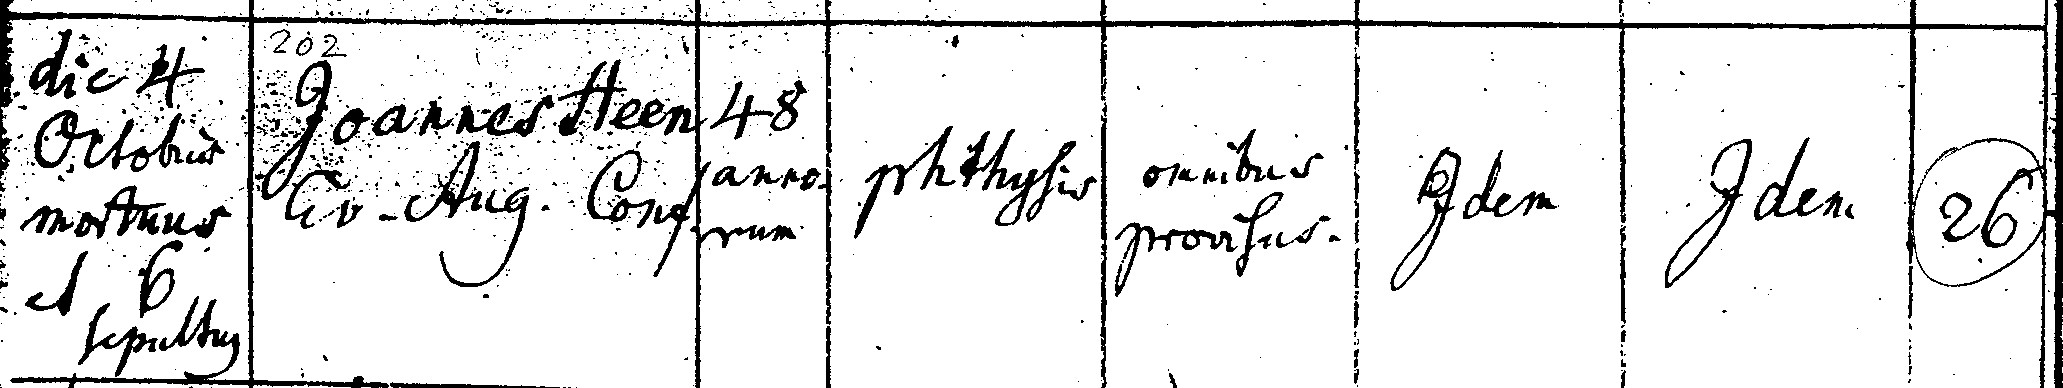 die 4
Octobris
mortuus
et 6
sepultus
202
Joannes Steen
Ev. Aug. Conf.
48
anno-
rum
phthysis
omnibus
provisus.
Idem
Idem
26